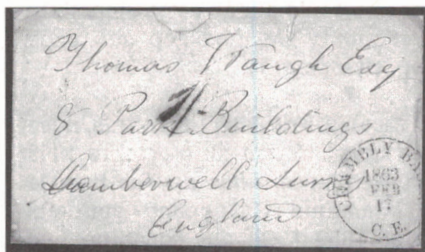 Thomas Waugh Esq
8 Park Buildings
Camberwell Surry
England
1863
FEB
17
C.E.